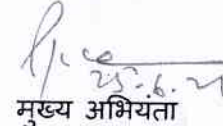 25.6.21
मुख्य अभियंता